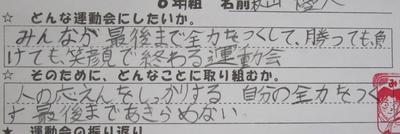 6年組 名前
★ どんな運動会にしたいか。
みんなが最後まで全力をつくして、勝っても負
けても、笑顔で終わる運動会
★ そのために、どんなことに取り組むか。
人の応えんをしっかりする 自分の全力をつく
す 最後まであきらめない
★ 運動会の振り返り